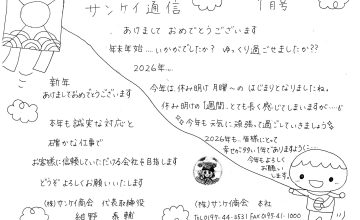 サンケイ通信 1月号
あけまして おめでとうございます
年末年始…いかがでしたか? ゆっくり過ごせましたか??
2026年…
今年は、休み明け月曜〜の はじまりとなりましたね。
休み明けの1週間、とても長く感じてしまいますが…💦
今年も元気に頑張って過ごしていきましょう
2026年も、皆様にとって
幸せが多い1年でありますように
今年もよろしく
お願いします
新年
あけましておめでとうございます
本年も誠実な対応と
確かな仕事で
お客様に信頼していただける会社を目指します
どうぞよろしくお願いいたします
(株)サンケイ商会 代表取締役
細野 泰輔
(株)サンケイ商会 本社
Tel 0197-44-2531 FAX 0197-41-1000